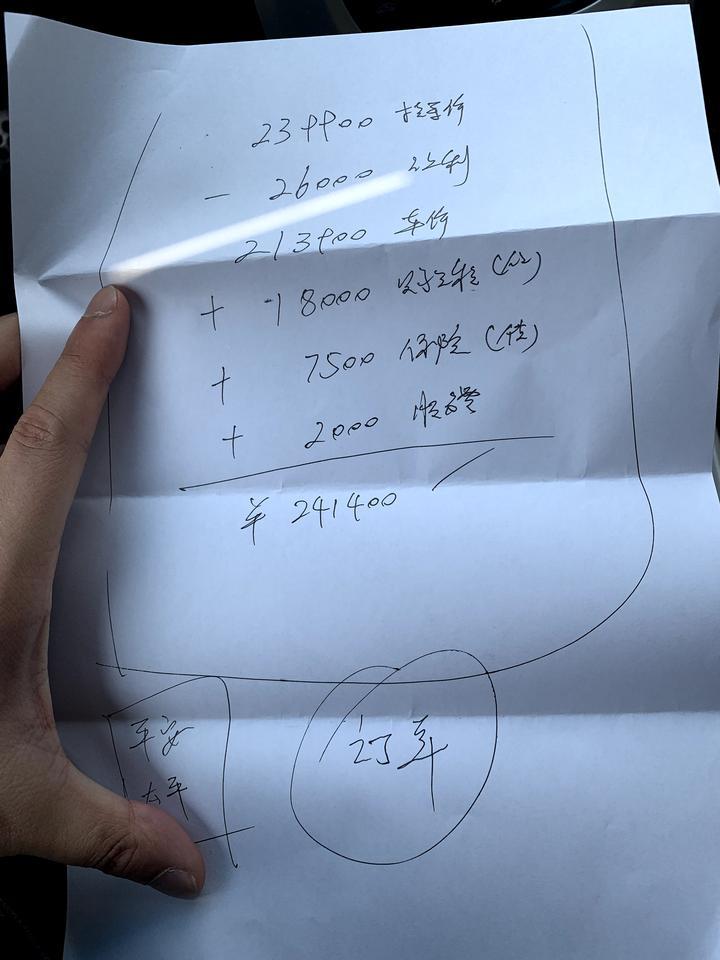 239900 指导价
- 26000 让利
213900 车价
+ 18000 购置税(估)
+ 7500 保险(估)
+ 2000 服务费
¥ 241400
平安
太平
订车